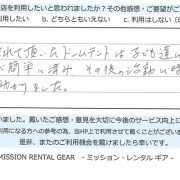 店を利用したいと思われましたか?その他感想・ご要望がご
用したい b. どちらともいえない c. 利用はしない(ま
れて頂いたドームテントは
簡単に済み その後の活動に時
助かりました。
いました。戴いたご感想・意見を大切に今後のサービス向上に
利用になる方への参考の為、当HP上で利用させて戴くことがございま
是非、またのご利用機会を戴けましたら幸いです。
MISSION RENTAL GEAR - ミッション・レンタル ギア -